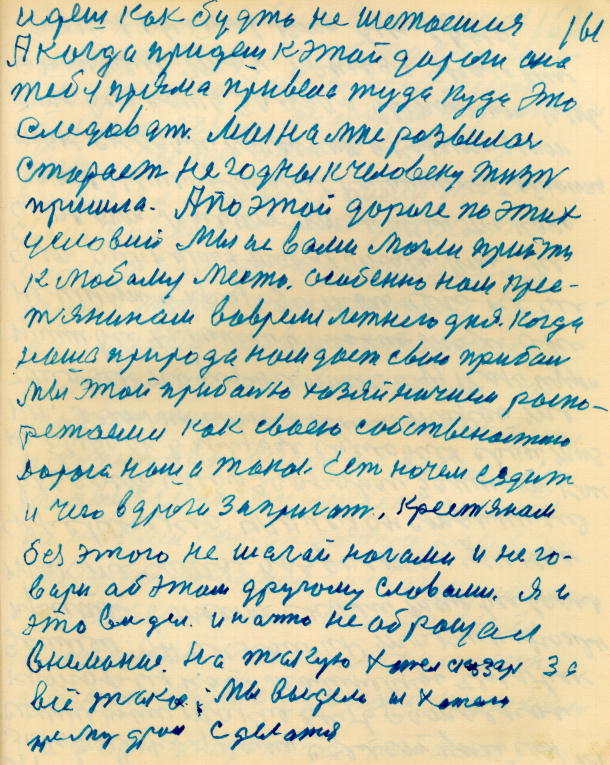 идеш как будто не шетаешия 161
А когда придеш к этой дороги она
тебя прямо привела туда куда это
следоват. Мысна мне розвилая
старает негодных к человеку жизн
пришла. А по этой дороге по этих
условий мы не вами могли прийти
к любому место. особенно нам крес-
тянинам вовремя летнего дня. когда
наша природа нам дает свою прибыл
мы этой прибылю хозяйничием распо-
ретаеми как своею собственостию
дорога наша такая. Ест на чем ездит
и чего в дроги запрягат., крестянам
без этого не шагай ногами и него-
вари об этом другому словами. я и
это видел. и на это не оброщал
внимание. На такую за
всё такое; мы видели и хотели
сделатся